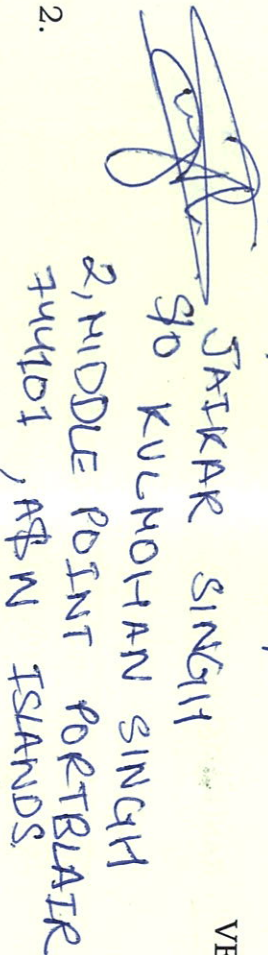 2.
JAIKAR SINGH
S/O KULMOHAN SINGH
2, MIDDLE POINT PORTBLAIR
744101, A&N ISLANDS
VE